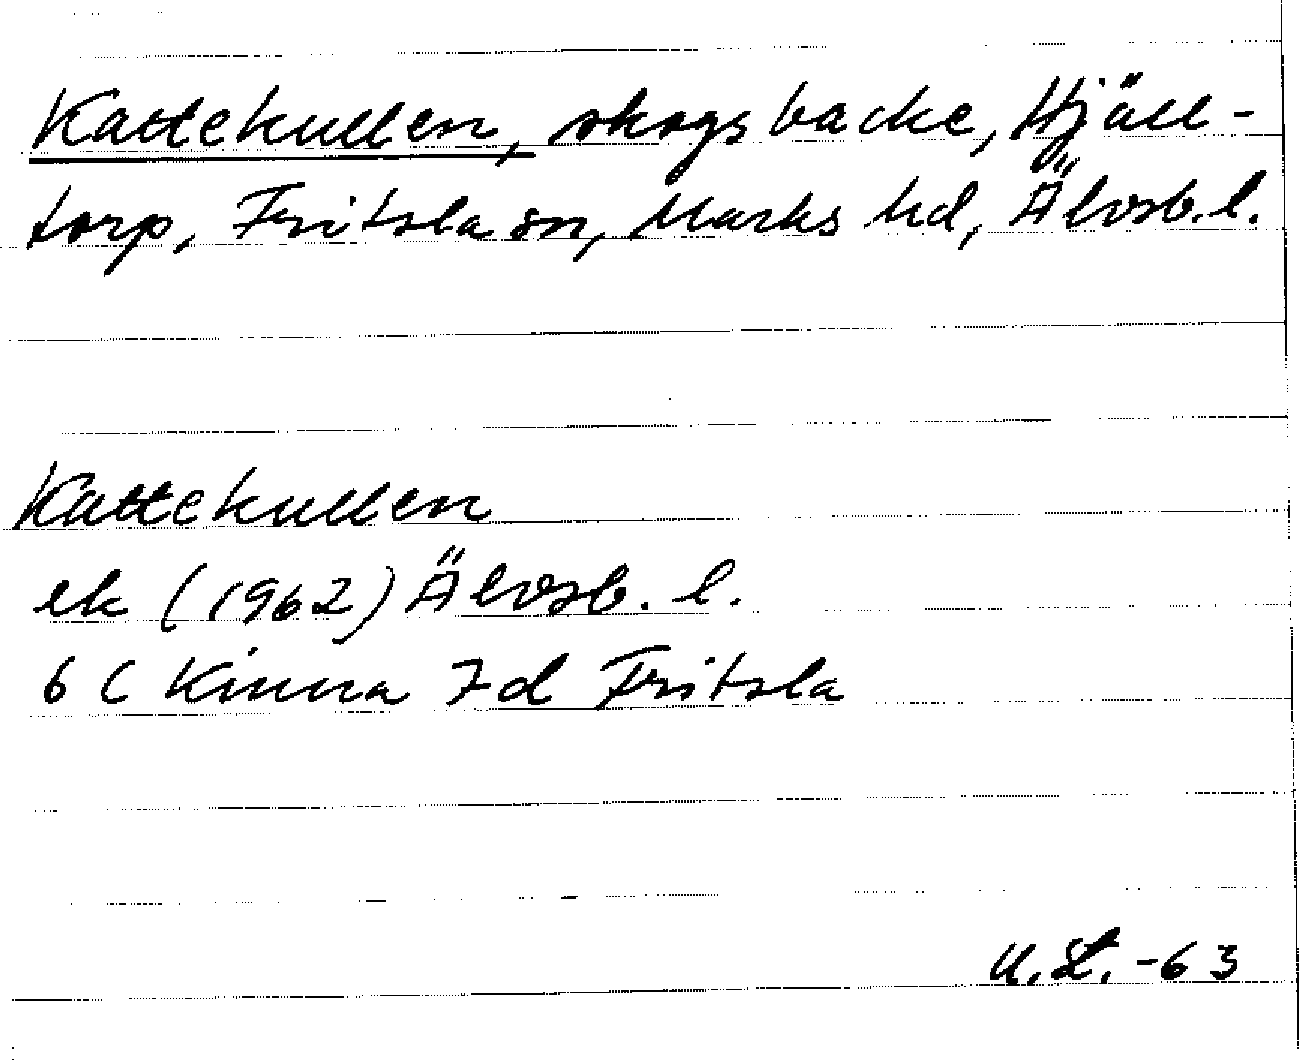 Kattekullen, skogsbacke, Hjäll-
torp, Fritsla sn, Marks hd, Älvsb. l.
Kattekullen
ek (1962) Älvsb. l.
6 C Kinna 7d Fritsla
U. L. -63